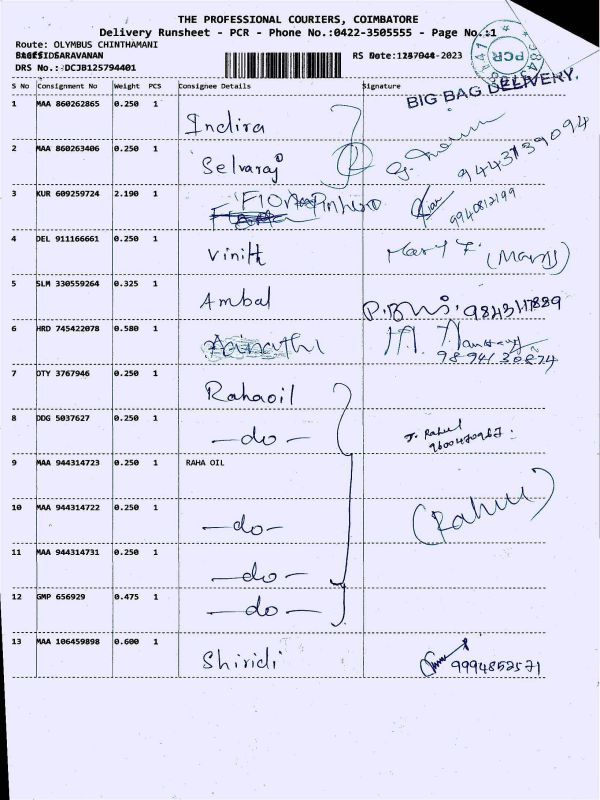 THE PROFESSIONAL COURIERS, COIMBATORE
Delivery Runsheet - PCR - Phone No.:0422-3505555 - Page No.:1
Route: OLYMBUS CHINTHAMANI
SARAVANAN RS Date:
DRS No.: DCJB125794401
S No Consignment No Weight PCS Consignee Details Signature
BIG BAG DELIVERY.
PCR
1 MAA 860262865 0.250 1 Indira
2 MAA 860263406 0.250 1 Selvaraj 9443739094
3 KUR 609259724 2.190 1 9940812199
4 DEL 911166661 0.250 1 Vinith Mary F. (Mary)
5 SLM 330559264 0.325 1 Ambal 9843117889
6 HRD 745422078 0.580 1
7 OTY 3767946 0.250 1 Rahaoil
8 DDG 5037627 0.250 1 - do - J. Rahul
9 MAA 944314723 0.250 1 RAHA OIL
10 MAA 944314722 0.250 1 - do - (Rahul)
11 MAA 944314731 0.250 1 - do -
12 GMP 656929 0.475 1 - do -
13 MAA 106459898 0.600 1 Shiridi 9994852571